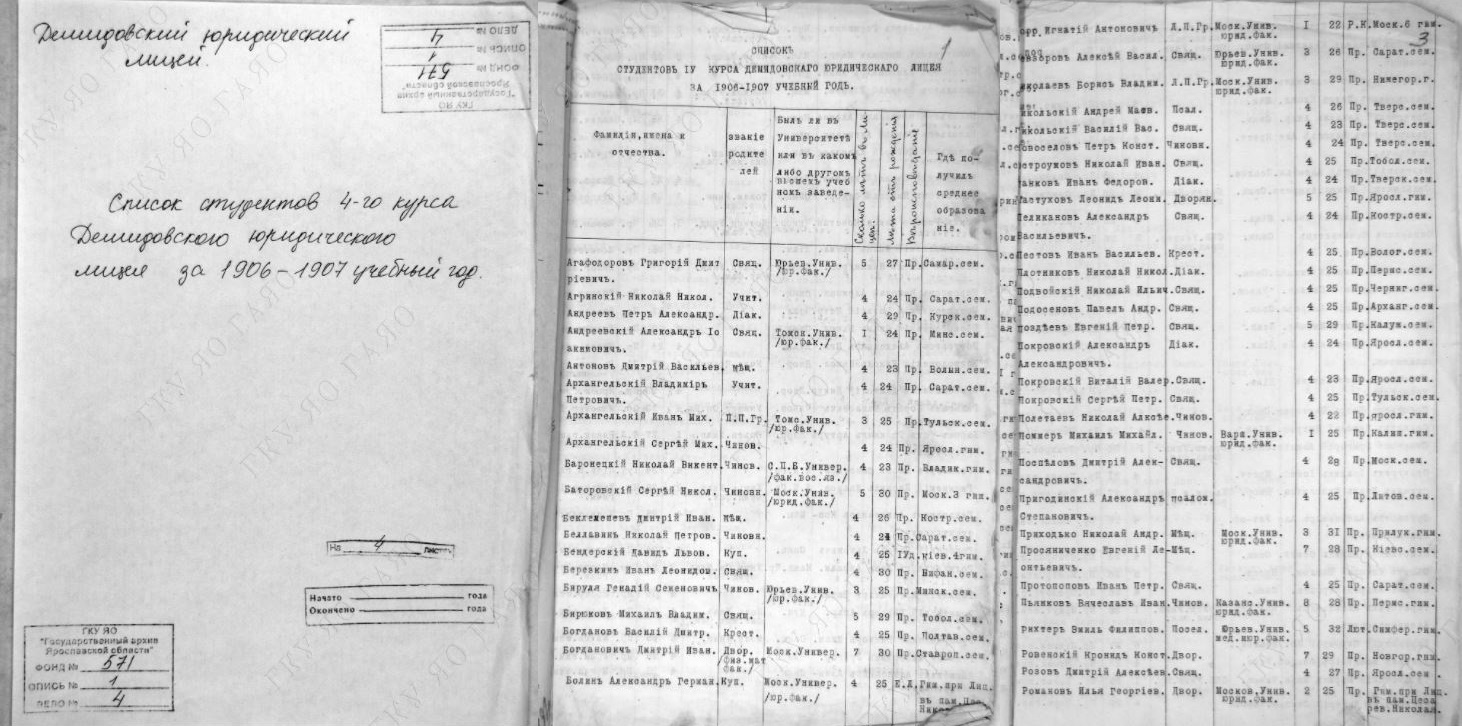 Демидовский юридический
лицей.
ДЕЛО № 4
ОПИСЬ № 1
ФОНД № 571
"Государственный архив
Ярославской области"
ГКУ ЯО
Список студентов 4-го курса
Демидовского юридического
лицея за 1906-1907 учебный год.
На 4 листах
Начато года
Окончено года
ГКУ ЯО
"Государственный архив
Ярославской области"
ФОНД № 571
ОПИСЬ № 1
ДЕЛО № 4
1
СПИСОКЪ
СТУДЕНТОВЪ IУ КУРСА ДЕМИДОВСКАГО ЮРИДИЧЕСКАГО ЛИЦЕЯ
ЗА 1906-1907 УЧЕБНЫЙ ГОДЪ.
Фамилія, имена и
отчества.
званіе
родите
лей
Былъ ли въ
Университетѣ
или въ каком
либо другомъ
высшемъ учеб
номъ заведе-
ніи.
Сколько лѣтъ въ Ли-
цеѣ.
Лѣта отъ рожденія
Вѣроисповѣданіе
Гдѣ по-
лучилъ
среднее
образова
ніе.
Агафодоровъ Григорій Дмит Свящ. Юрьев.Унив. 5 27 Пр.Самар.сем.
ріевичъ. /юр.фак./
Агринскій Николай Никол. Учит. 4 24 Пр. Сарат.сем.
Андреевъ Петръ Александр. Діак. 4 29 Пр. Курск.сем.
Андреевскій Александръ Іо Свящ. Томск.Унив. I 24 Пр. Минс.сем.
акимовичъ. /юр.фак./
Антоновъ Дмитрій Васильев. Мѣщ. 4 23 Пр. Волын.сем.
Архангельскій Владиміръ Учит. 4 24 Пр. Сарат.сем.
Петровичъ.
Архангельскій Иванъ Мих. П.П.Гр. Томс.Унив. 3 25 Пр.Тульск.сем.
/юр.фак./
Архангельскій Сергѣй Мих. Чинов. 4 24 Пр. Яросл.гим.
Баронецкій Николай Викент. Чинов. С.П.Б.Универ. 4 23 Пр. Владик.гим.
/фак.вос.яз./
Баторовскій Сергѣй Никол. Чиновн. Моск.Унив. 5 30 Пр. Моск.3 гим.
/юрид.фак./
Беклемешевъ Дмитрій Иван. Мѣщ. 4 26 Пр. Костр.сем.
Беллавинъ Николай Петров. Чиновн. 4 24 Пр.Сарат.сем.
Бендерскій Давидъ Львов. Куп. 4 25 IУд.Кіев.4гим.
Березкинъ Иванъ Леонидом. Свящ. 4 30 Пр. Вифан.сем.
Бируля Генадій Семеновичъ Чинов. Юрьев.Унив. 3 25 Пр.Минск.сем.
/юр.фак./
Бирюковъ Михаилъ Владим. Свящ. 5 29 Пр. Тобол.сем.
Богдановъ Василій Дмитр. Крест. 4 25 Пр. Полтав.сем.
Богдановичъ Дмитрій Иван. Двор. Моск.Универ. 7 30 Пр.Ставроп.сем.
/физ.мат
фак./
Болинъ Александръ Герман. Куп. Моск.Универ. 4 25 Е.Л.Гим.при Лиц.
/юр.фак./ въ пам.
3
Игнатій Антоновичъ Л.П.Гр. Моск.Унив. I 22 Р.К.Моск.6 гим.
юрид.фак.
Алексѣй Васил. Свящ. Юрьев.Унив. 3 26 Пр. Сарат.сем.
юрид.фак.
иколаевъ Борисъ Владим. Л.П.Гр. Моск.Унив. 3 29 Пр. Нижегор.г.
юрид.фак.
икольскій Андрей Матв. Псал. 4 26 Пр. Тверс.сем.
икольскій Василій Вас. Свящ. 4 23 Пр. Тверс.сем.
овоселовъ Петръ Конст. Чиновн. 4 24 Пр. Тверс.сем.
строумовъ Николай Иван. Свящ. 4 25 Пр.Тобол.сем.
анковъ Иванъ Федоров. Діак. 4 24 Пр.Тверск.сем.
астуховъ Леонидъ Леони. Дворян. 5 25 Пр.Яросл.гим.
Пеликановъ Александръ Свящ. 4 24 Пр.Костр.сем.
Васильевичъ.
Пестовъ Иванъ Васильев. Крест. 4 25 Пр.Волог.сем.
Плотниковъ Николай Никол. Діак. 4 25 Пр.Пермс.сем.
Подвойскій Николай Ильич. Свящ. 4 25 Пр.Черниг.сем.
Подосеновъ Павелъ Андр. Свящ. 4 25 Пр.Арханг.сем.
Поздѣевъ Евгеній Петр. Свящ. 5 29 Пр.Калуж.сем.
Покровскій Александръ Діак. 4 24 Пр.Яросл.сем.
Александровичъ.
Покровскій Виталій Валер. Свящ. 4 23 Пр.Яросл.сем.
Покровскій Сергѣй Петр. Свящ. 4 25 Пр.Тульск.сем.
Полетаевъ Николай Алксѣе. Чинов. 4 22 Пр.яросл.гим.
Поммеръ Михаилъ Михайл. Чинов. Варш.Унив. I 25 Пр.Калиш.гим.
юрид.фак.
Поспѣловъ Дмитрій Алек- Свящ. 4 28 Пр.Моск.сем.
сандровичъ.
Пригодинскій Александръ псалом. 4 25 Пр.Литов.сем.
Степановичъ.
Приходько Николай Андр. Мѣщ. Моск.Унив. 3 31 Пр. Прилук.гим.
юрид.фак.
Просяниченко Евгеній Ле- Мѣщ. 7 28 Пр. Кіевс.сем.
онтьевичъ.
Протопоповъ Иванъ Петр. Свящ. 4 25 Пр. Сарат.сем.
Пьянковъ Вячеславъ Иван. Чинов. Казанс.Унив. 8 28 Пр. Пермс.гим.
юрид.фак.
Рихтеръ Эмиль Филиппов. Посел. Юрьев.Унив. 5 32 Лют.Симфер.гим.
мед.июр.фак.
Ровенскій Кронидъ Конст. Двор. 7 29 Пр. Новгор.гим.
Розовъ Дмитрій Алексѣев. Свящ. 4 27 Пр. Яросл.сем.
Романовъ Илья Георгіев. Двор. Москов.Унив. 2 25 Пр. Гим.при Лиц.
юрид.фак. въ пам.Цеса
рев.Николая.